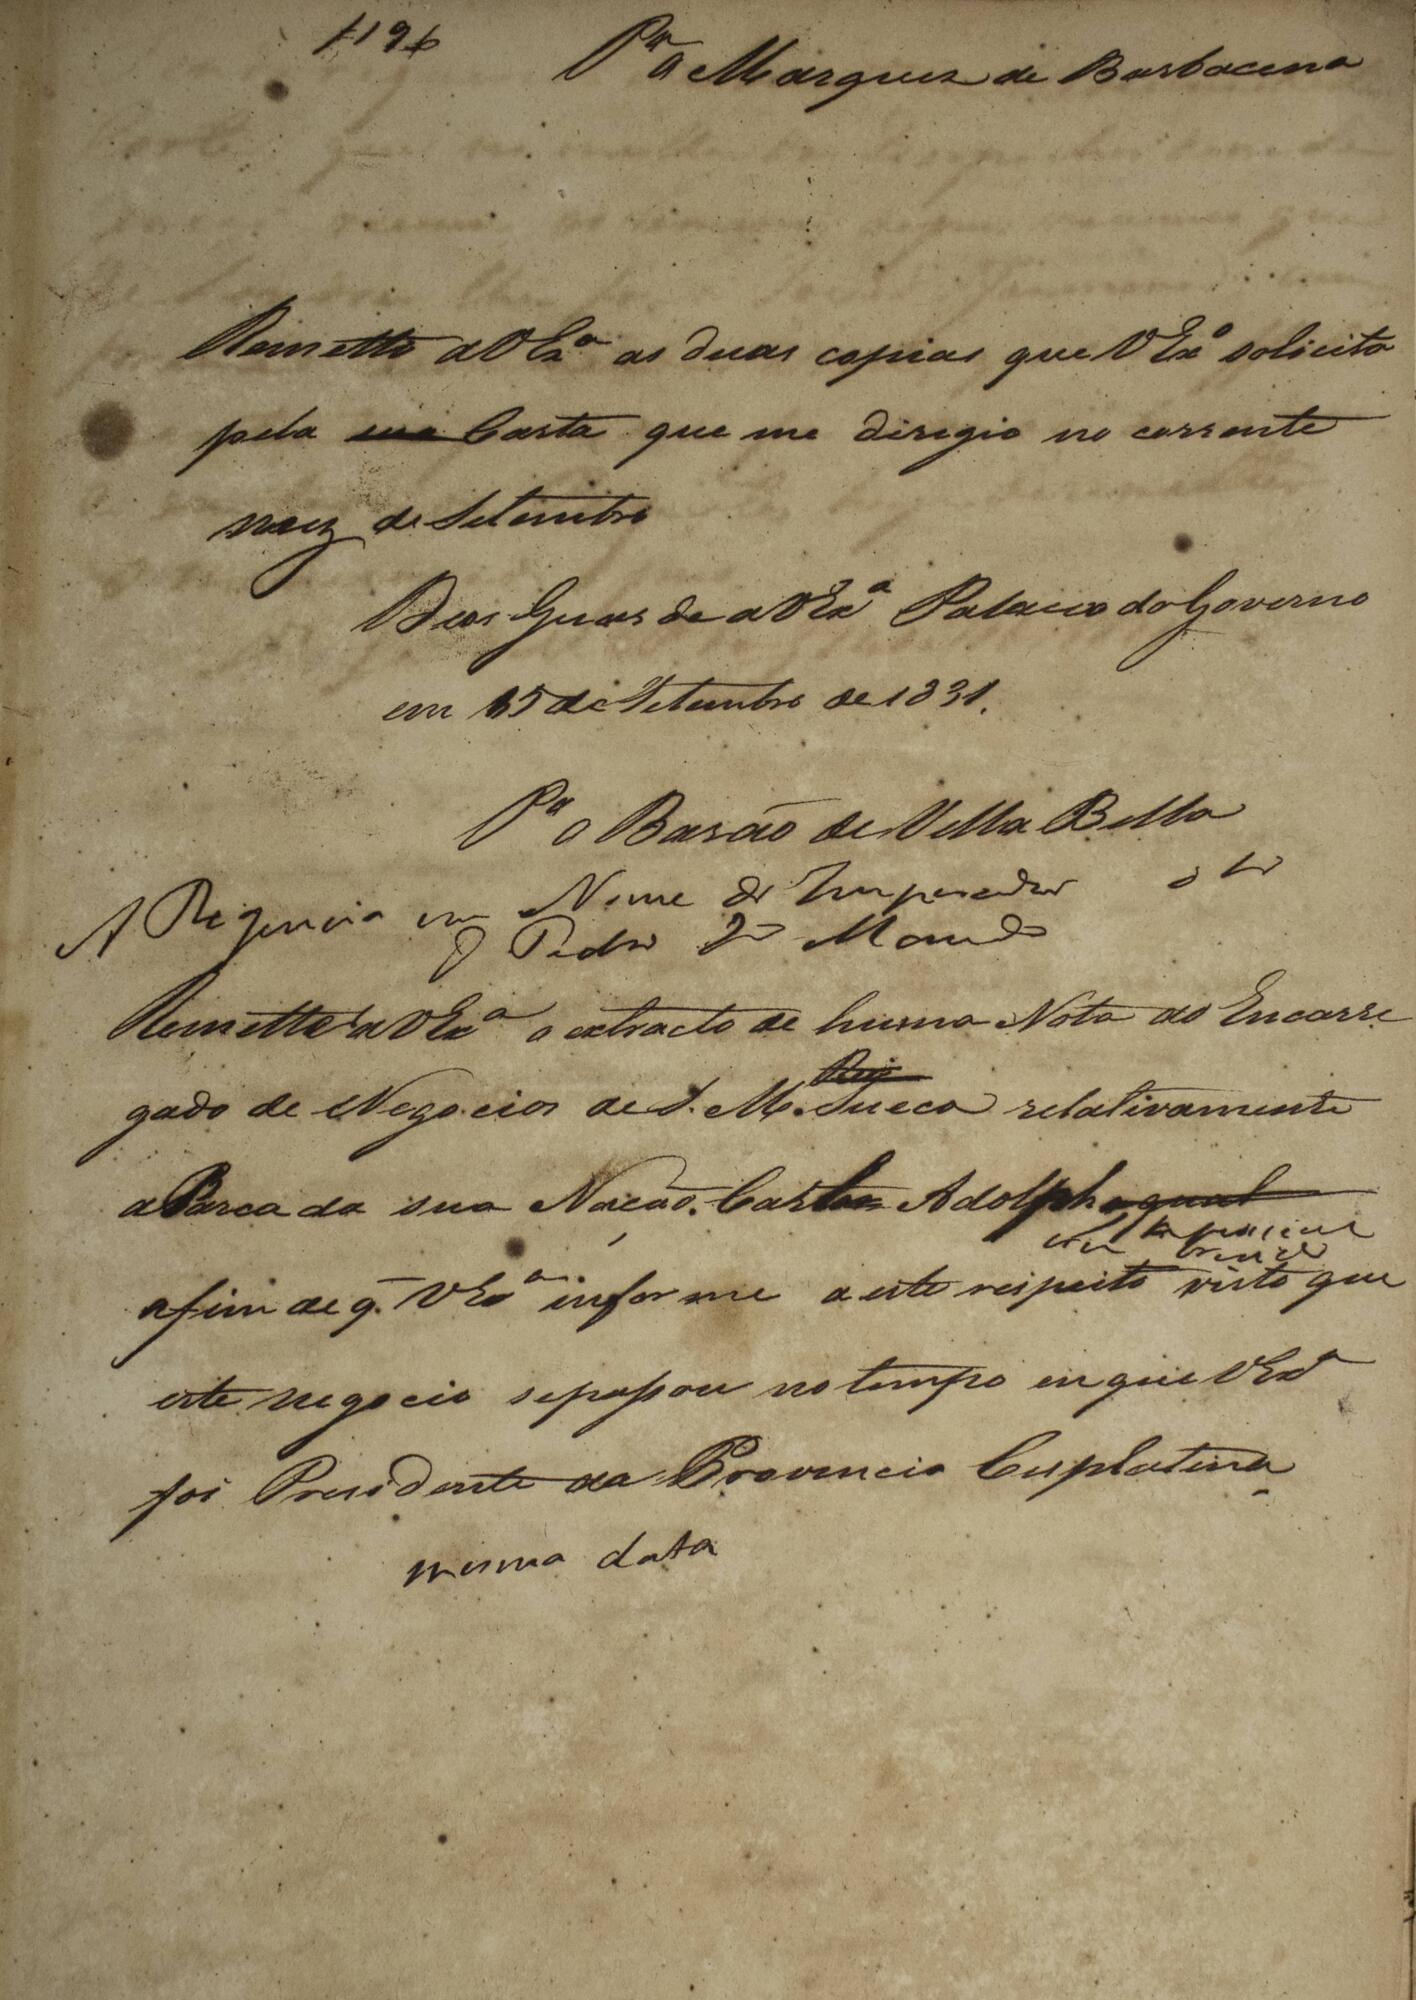 1196
Pª o Marquez de Barbacena
Remetto a V Exª as duas copias que V Exª solicita
pela sua Carta que me dirigio no corrente
mez de Setembro
Deos Guarde a V Exª Palacio do Governo
em 15 de Setembro de 1831.
Pª o Barão de Villa Bella
A Regencia em Nome do Imperador o Sr
D Pedro 2º Manda
Remetter a V Exª o extracto de huma Nota do Encarre
gado de Negocios de S. M. Sueca relativamente
a Barca da sua Nação. Carlos Adolpho qual
afim de q. V Exª informe a este respeito visto que
este negocio se passou no tempo em que V Exª
foi Presidente da Provincia Cisplatina
mesma data